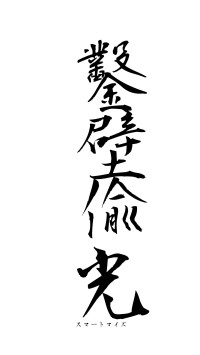 鑿壁偸光
スマートマイズ